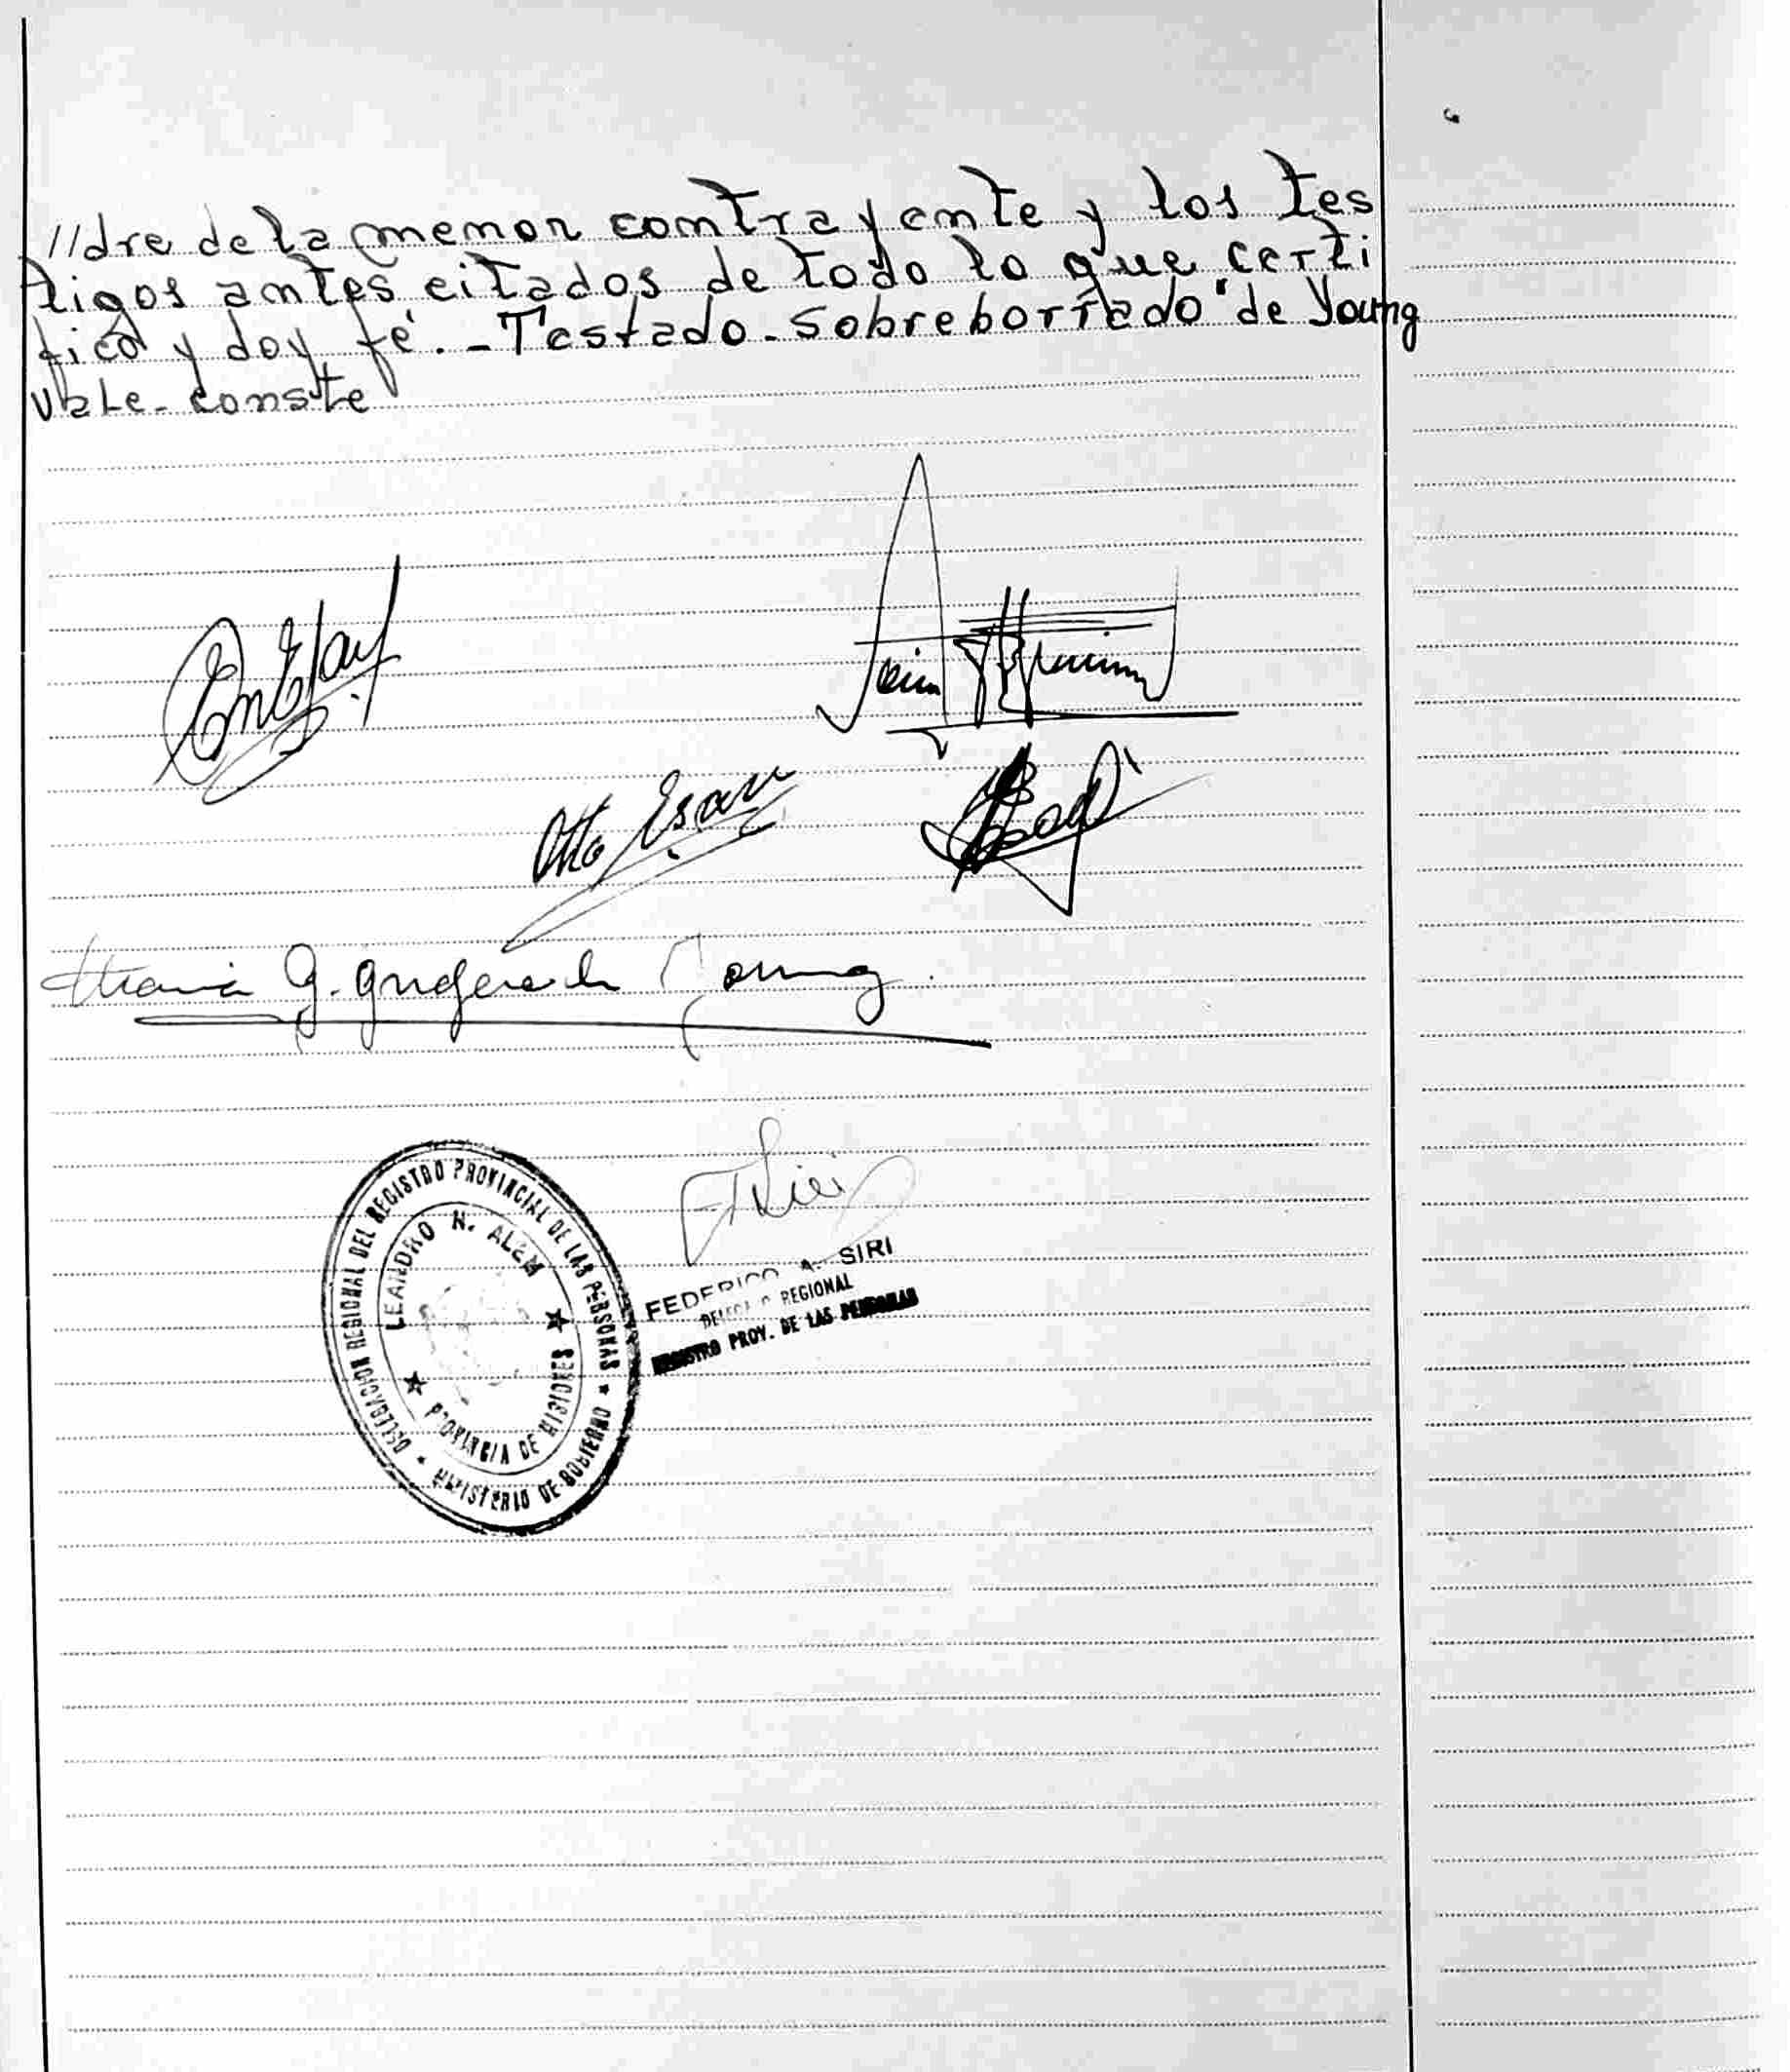 //dre de la menor contrayente y los tes
tigos antes citados de todo lo que certi
fico y doy fé.-Testado-Sobreborrado "de Young
Vale-conste
Otto
Maria G. de Young
DELEGACION REGIONAL DEL REGISTRO PROVINCIAL DE LAS PERSONAS * MINISTERIO DE GOBIERNO *
LEANDRO N. ALEM
PROVINCIA DE MISIONES
FEDERICO A. SIRI
DELEGADO REGIONAL
REGISTRO PROV. DE LAS PERSONAS